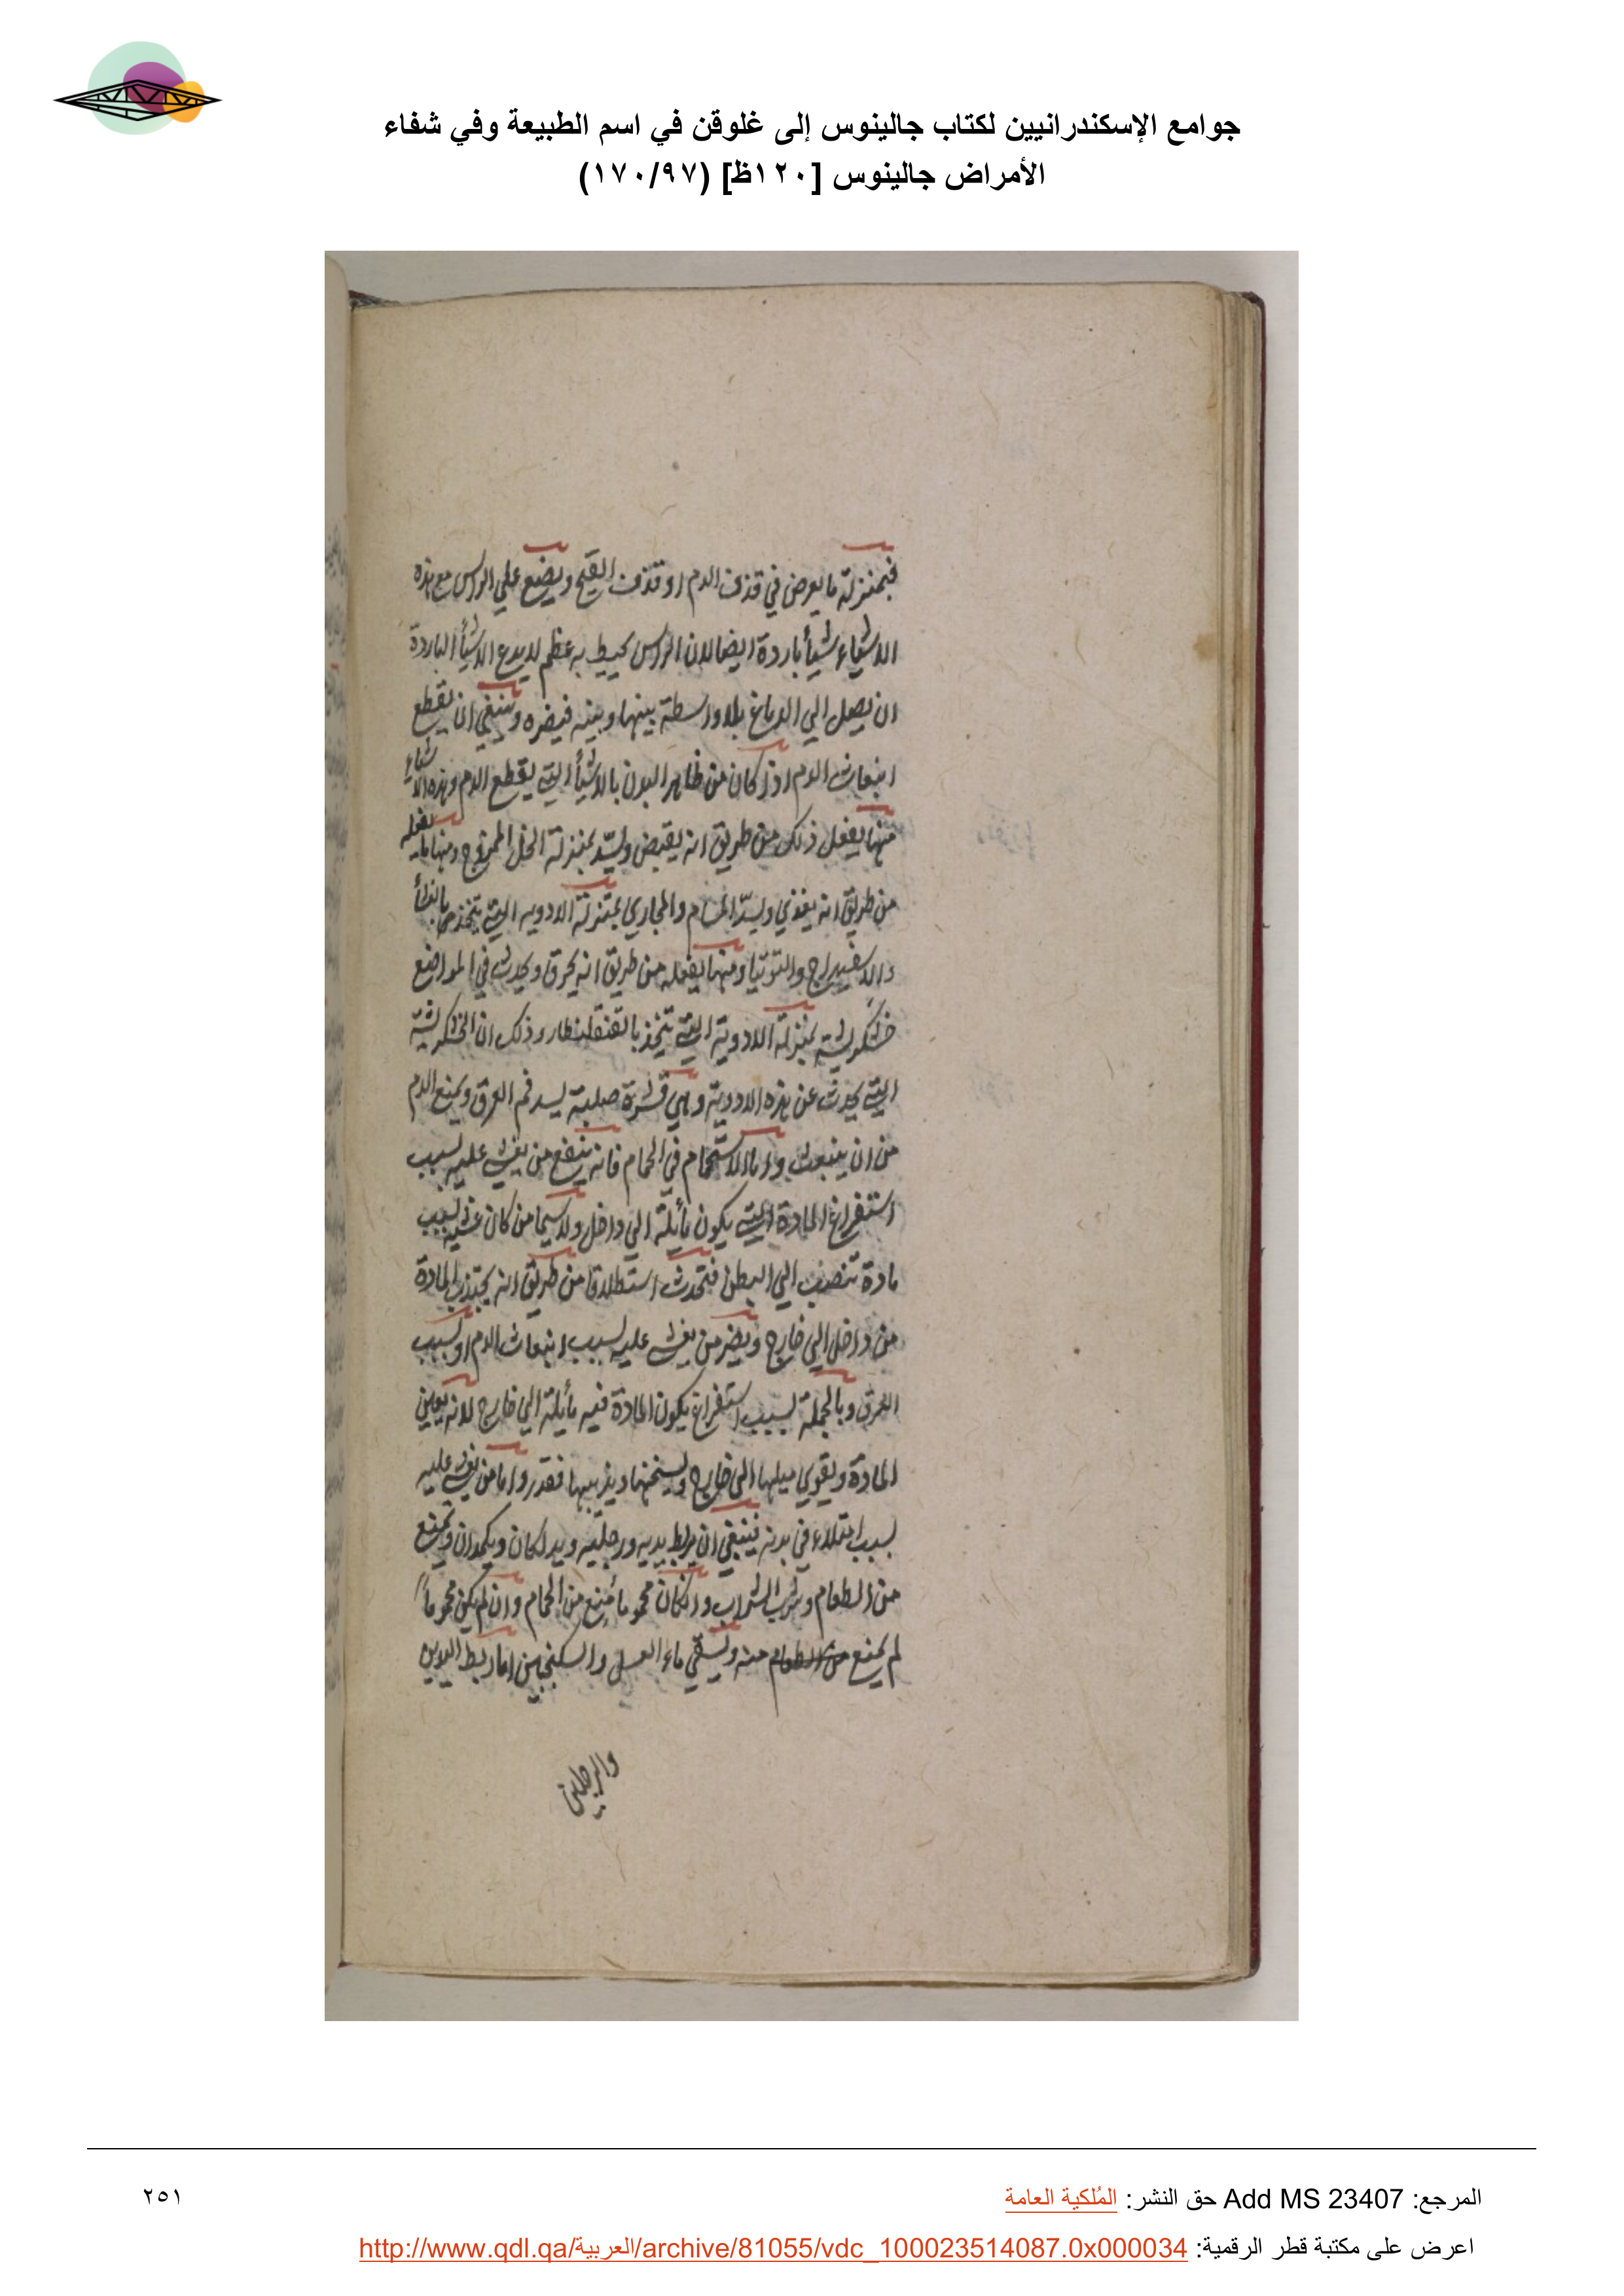 جوامع الإسكندرانيين لكتاب جالينوس إلى غلوقن في اسم الطبيعة وفي شفاء
الأمراض جالينوس [١٢٠ظ] (١٧٠/٩٧)
فبمنزلة ما يعرض في قذف الدم او قذف القيح ويضع علي الراس مع هذه
الاشياء شيأ باردة ايضا لان الراس يحيط به عظم لا يدع الاشيأ الباردة
ان يصل الي الدماغ بلا واسطة بينها وبينه فيضره وينبغي ان يقطع
انبعاث الدم اذا كان من ظاهر البدن بالاشيأ التي يقطع الدم وهذه الاشياء
منها يفعل ذلك من طريق انه يقبض ويسدّ بمنزلة الخل الممزوج ومنها ما يفعله
من طريق انه يغذي ويسدّ المسام والمجاري بمنزلة الادويه التي يتخذ
والاسفيداج والتوتيا ومنها يفعله من طريق انه يحرق ويحدث في المواضع
خشكريشة بمنزلة الادوية التي تتخذ بالقلقطار وذلك ان الخشكريشة
التي يحدث عن هذه الادوية وهي قشرة صلبة يسد فم العرق ويمنع الدم
من ان ينبعث واما الاستحمام في الحمام فانه ينتفع من يغشي عليه بسبب
استفراغ المادة التي يكون مأيلة الي داخل ولا سيما من كان غشيه بسبب
مادة تنصب الي البطن فتحدث استطلاقا من طريق انه يجتذب المادة
من داخل الي خارج ويضر من يغشي عليه بسبب انبعاث الدم او بسبب
العرق وبالجملة بسبب استفراغ يكون المادة فيه مأيلة الي خارج لانه يعين
المادة ويقوي ميلها الي خارج ويسخنها ويذيبها فقدر واما من يغشي عليه
بسبب امتلاء في بدنه فينبغي ان يربط يديه ورجليه ويدلكان ويكمدان ويمنع
من الطعام وشرب الشراب وان كان محموما مُنع من الحمام وان لم يكن محموماً
لم يمنع من الطعام منه ويسقي ماء العسل والسكنجبين اما ربط اليدين
والرجلين
المرجع: Add MS 23407 حق النشر: المُلكية العامة
٢٥١
اعرض على مكتبة قطر الرقمية: http://www.qdl.qa/العربية/archive/81055/vdc_100023514087.0x000034